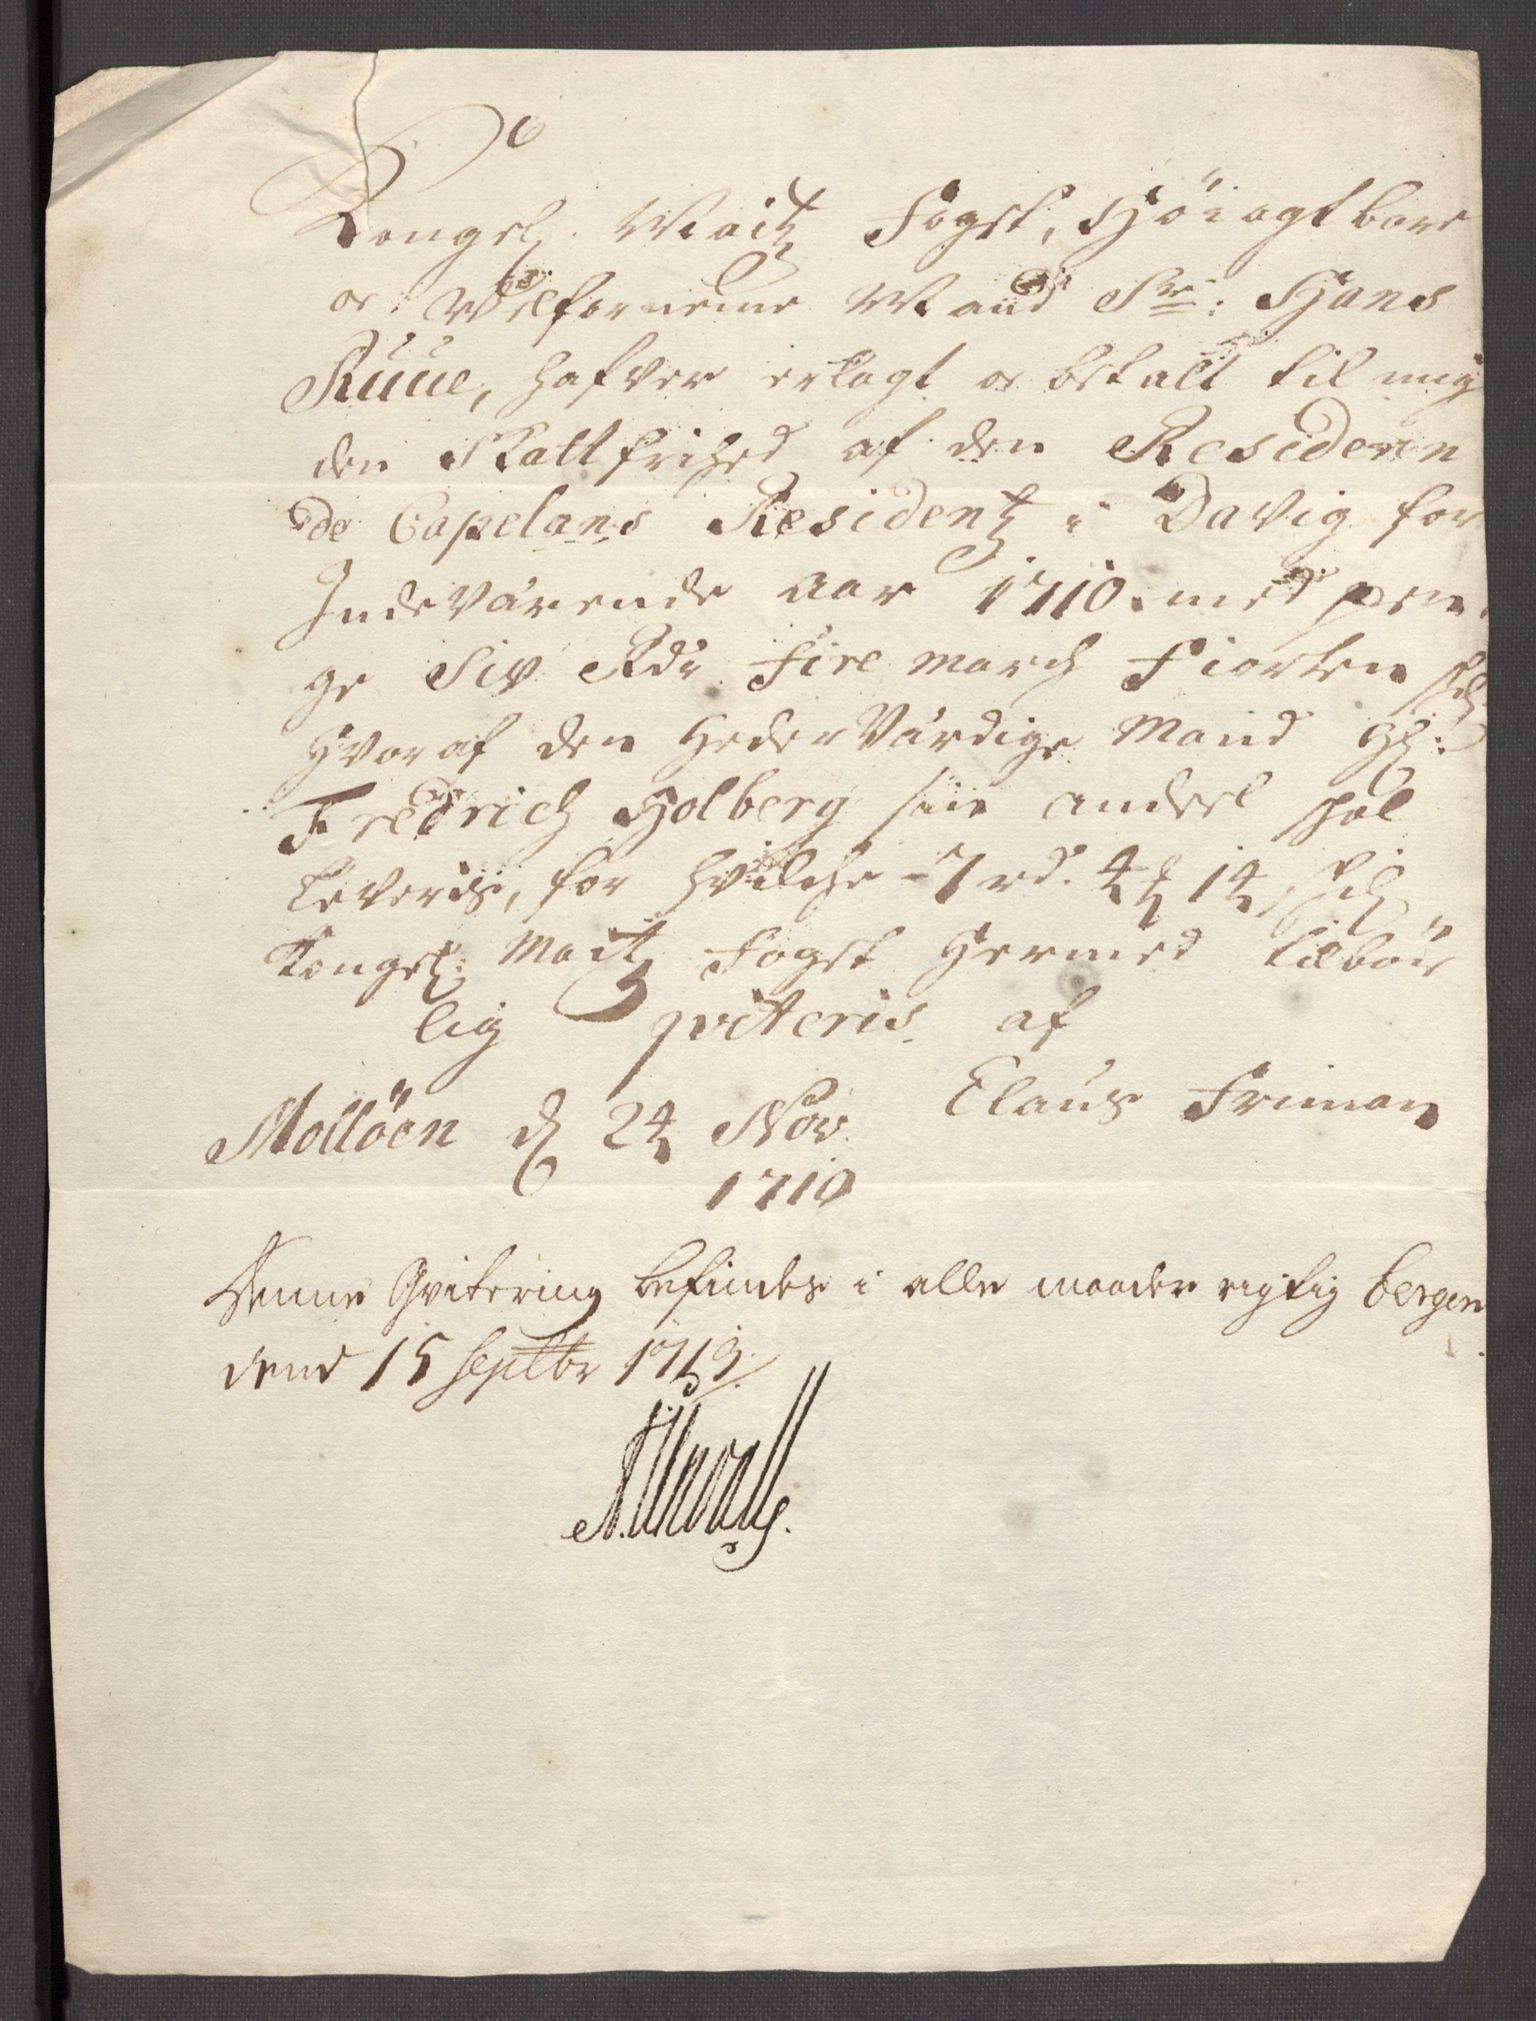 Kongel: Maitz Fogst, Höiagtbare
oc Velfornemme Mand Sr: Hans
Ruue, hafver erlagt oc betalt til mig
den Skattfrihed af den Resideren
de Capelans Residentz i Davig for
Indeværende aar 1710 med pen
ge Siv Rdr Fire march Fiorten sk
hvoraf den HederVærdige Mand Hr:
Fredrich Holberg sin andeel skal
leveris, for hvilche 7 rd. 4 14 sk
Kongel: Maitz Fogst hermed tilbör
lig qviteris af
Molöen d 24 Nov. Claus Friman
1710
Denne Qvitering befindes i alle maader rigtig bergen
dend 15 Septbr 1713.